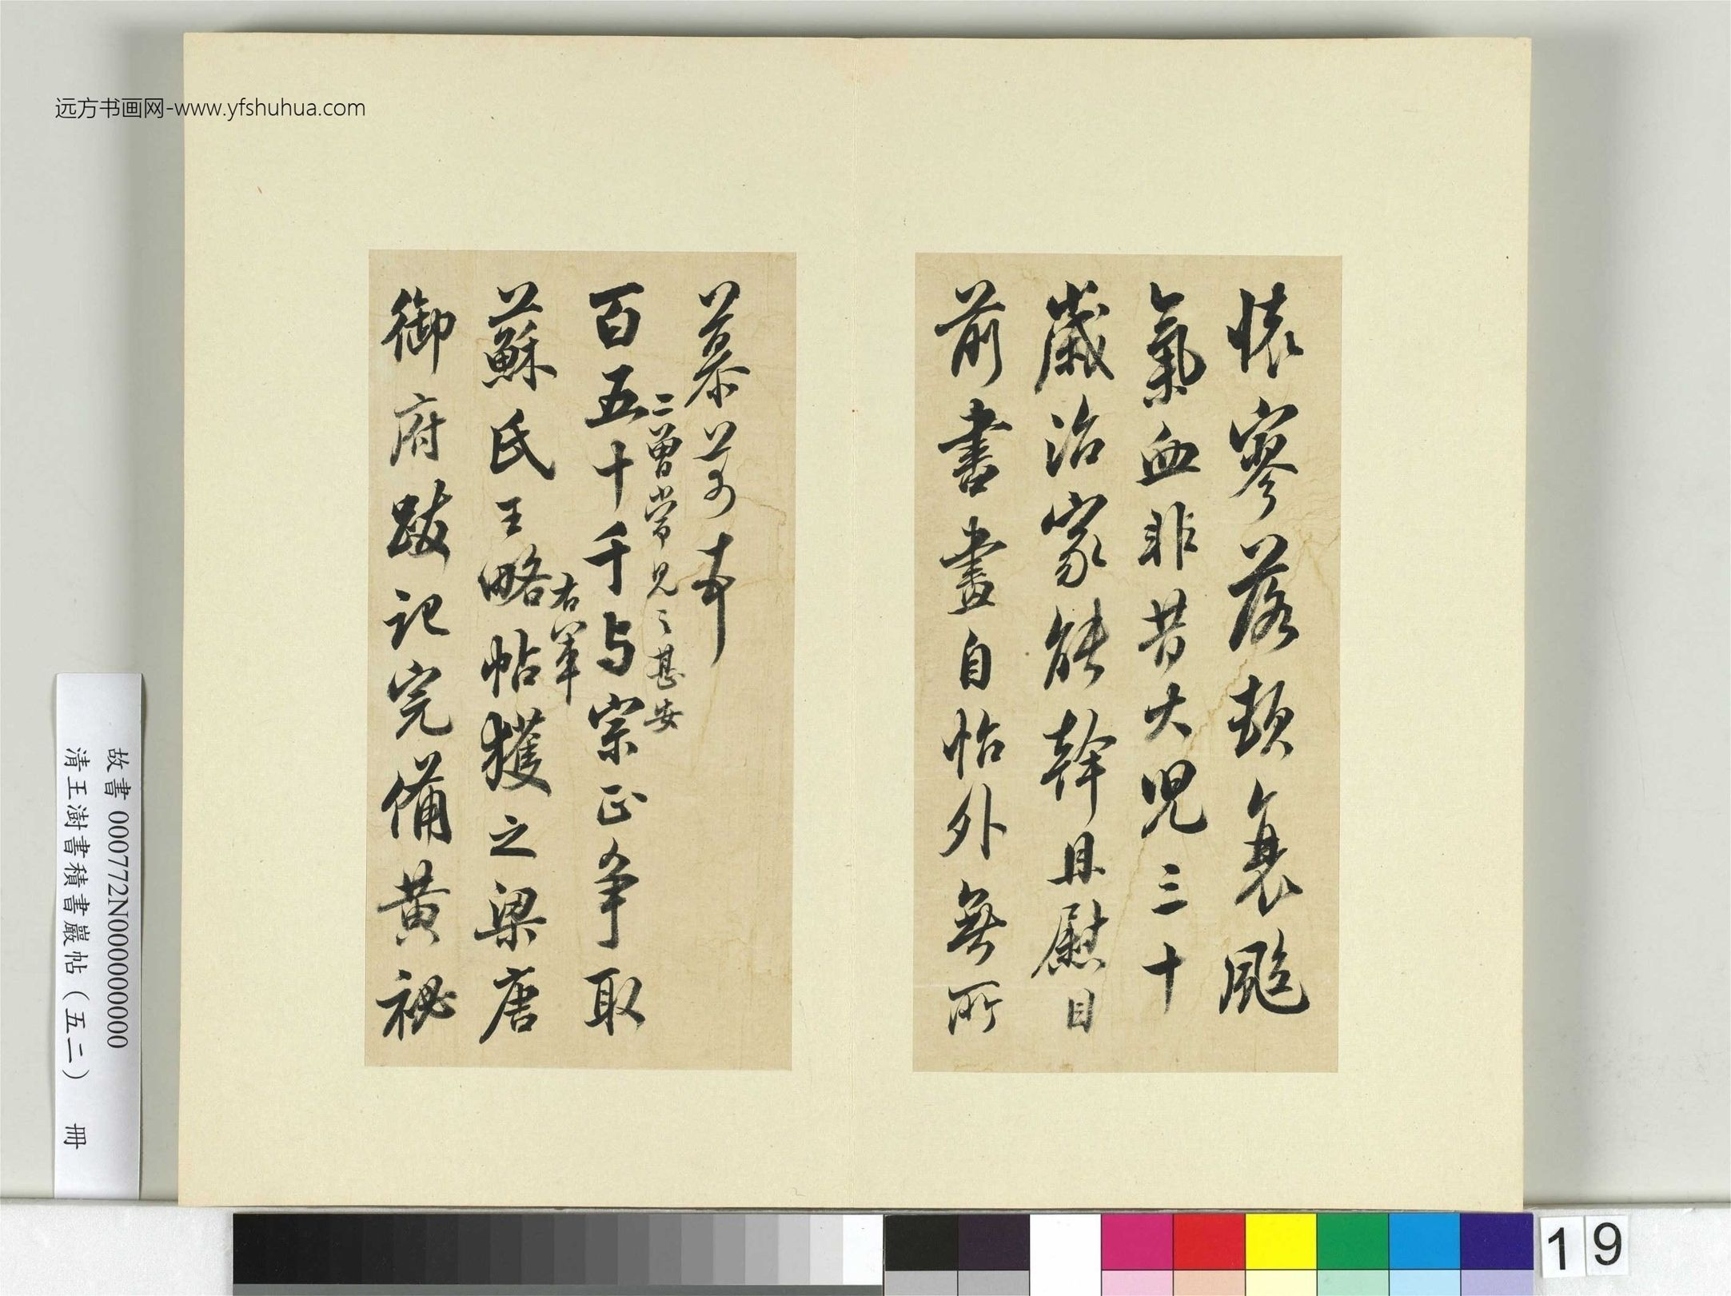 远方书画网-www.yfshuhua.com
懷寥落頓衰颯
氣血非昔大兒三十
歲治家能幹且慰目
前書畫自怡外無所
慕
二曾常見之甚安
百五十千与宗正爭取
蘇氏王略帖獲之梁唐
右軍
御府跋記完備黃祕
故書 000772N000000000
清王澍書積書巖帖（五二） 冊
19